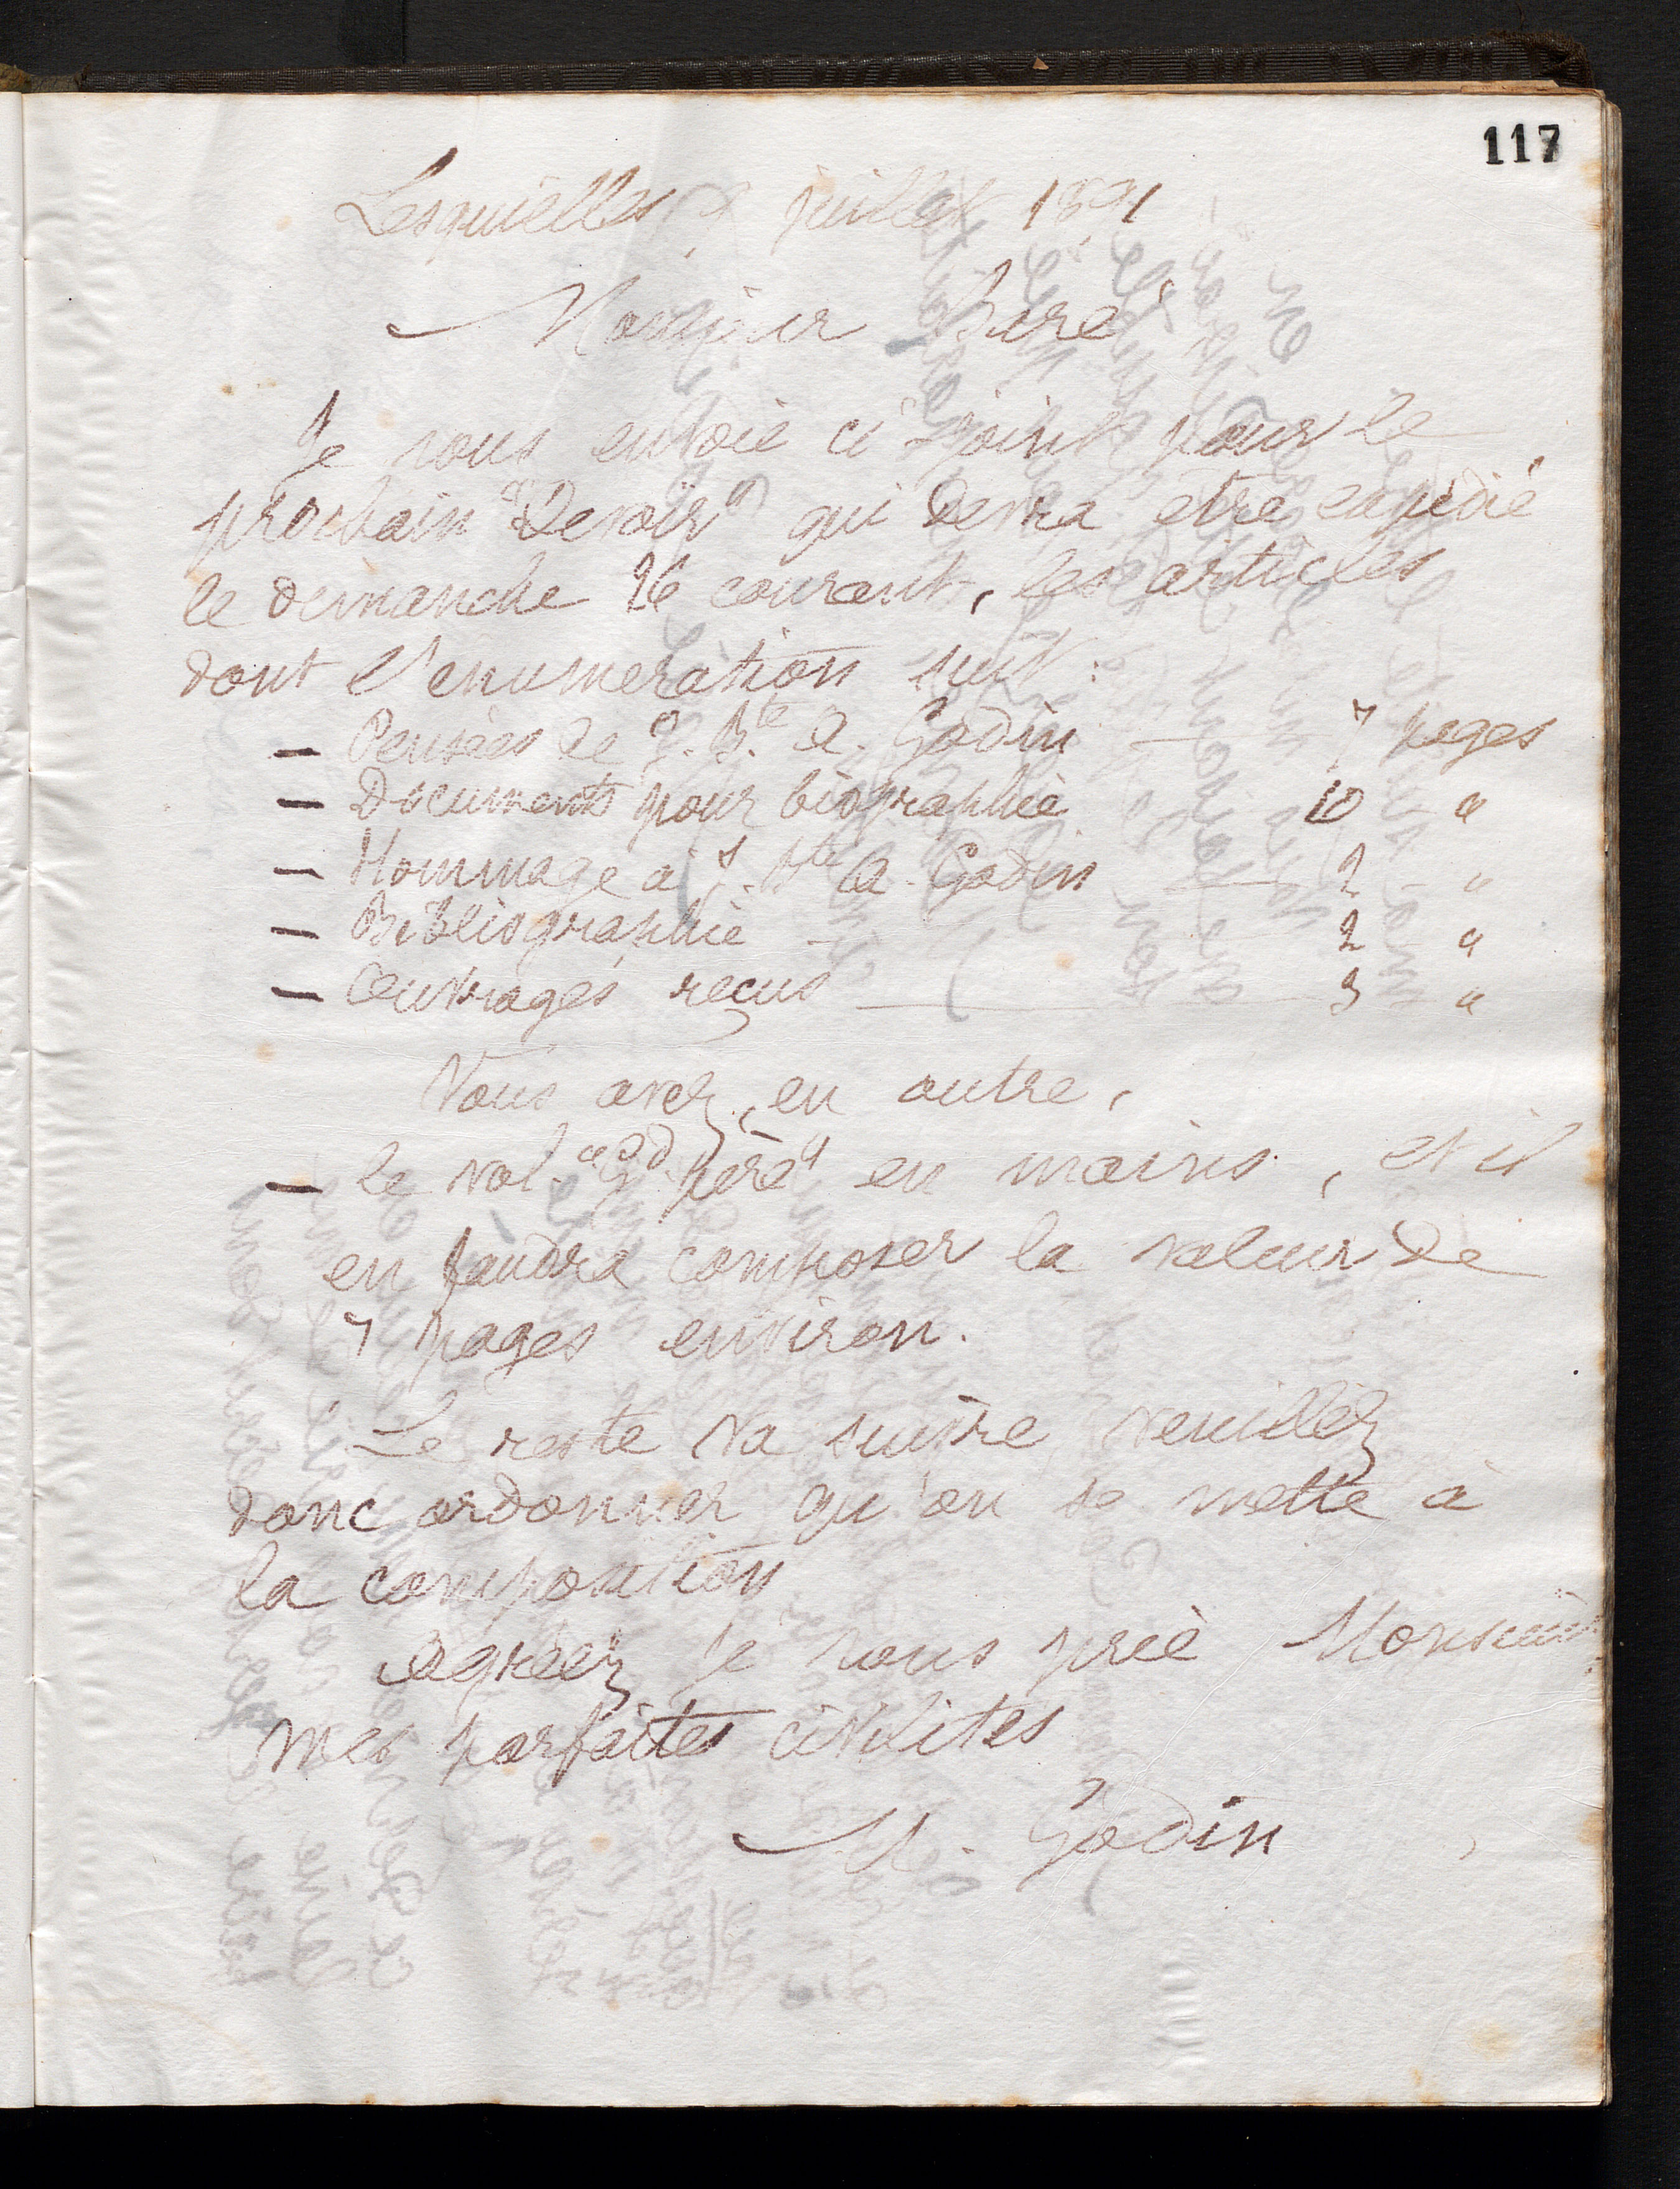 117
Lesquielles 9 juillet 1891
Monsieur Buré
Je vous envoie ci joint pour le
prochain "Devoir" qui devra etre expédié
le dimanche 26 courant, les articles
dont l'énumération suit :
— Pensées de J. Bte A. Godin — 7 pages
— Documents pour biographie 10 "
— Hommage à J. Bte A. Godin — 2 "
— Bibliographie — 2 "
— Ouvrages reçus — 3 "
Vous avez, en outre,
— le vol. "Gd père" en mains, et il
en faudra composer la valeur de
7 pages environ.
Le reste va suivre veuillez
donc ordonner qu'on se mette à
la composition
Agréez je vous prie Monsieur
mes parfaites civilités
M. Godin